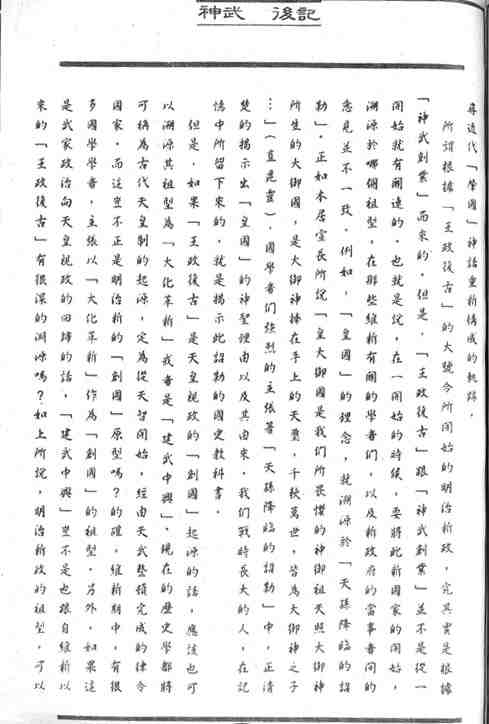 神武　後記
尋近代「肇國」神話重新構成的軌跡。
所謂根據「王政復古」的大號令所開始的明治新政，究其實是根據
「神武創業」而來的。但是，「王政復古」跟「神武創業」並不是從一
開始就有關連的。也就是說，在一開始的時候，要將此新國家的開始，
溯源於哪個祖型，在那些維新有關的學者們，以及新政府的當事者間的
意見並不一致。例如，「皇國」的理念，就溯源於「天孫降臨的詔
勅」，正如本居宣長所說「皇大御國是我們所畏懼的神御祖天照大御神
所生的大御國，是大御神捧在手上的天璽，千秋萬世，皆為大御神之子
…」(直毘靈)，國學者們強烈的主張著「天孫降臨的詔勅」中，正清
楚的揭示出「皇國」的神聖理由以及其由來。我們戰時長大的人，在記
憶中所留下來的，就是揭示此詔勅的國定教科書。
但是，如果「王政復古」是天皇親政的「創國」起源的話，應該也可
以溯源其祖型為「大化革新」或者是「建武中興」。現在的歷史學都將
可稱為古代天皇制的起源，定為從天智開始，經由天武整頓完成的律令
國家。而這豈不正是明治新的「創國」原型嗎？的確，維新期中，有很
多國學學者，主張以「大化革新」作為「創國」的祖型。另外，如果這
是武家政治向天皇親政的回歸的話，「建武中興」豈不是也跟自維新以
來的「王政復古」有很深的淵源嗎？如上所說，明治新政的祖型，可以